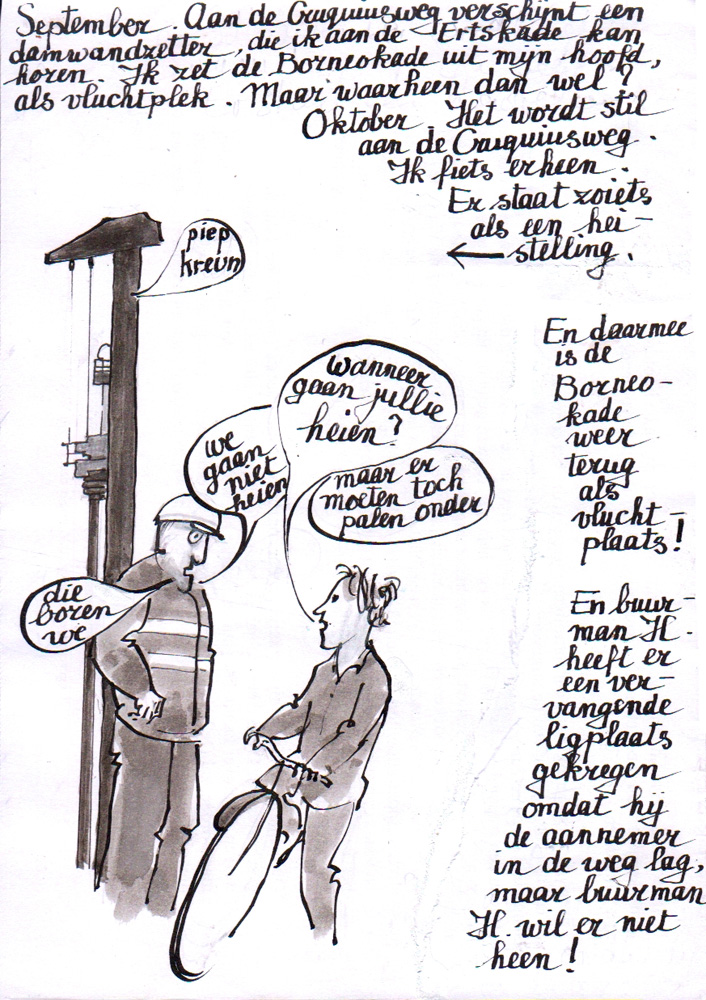 September. Aan de Cruquiusweg verschijnt een
damwandzetter, die ik aan de Ertskade kan
horen. Ik zet de Borneokade uit mijn hoofd,
als vluchtplek. Maar waarheen dan wel?
Oktober. Het wordt stil
aan de Cruquiusweg.
Ik fiets erheen.
Er staat zoiets
als een hei-
← stelling.
piep
kreun
wanneer
gaan jullie
heien?
we
gaan
niet
heien
maar er
moeten toch
palen onder
die
boren
we
En daarmee
is de
Borneo-
kade
weer
terug
als
vlucht-
plaats!
En buur-
man H.
heeft er
een ver-
vangende
ligplaats
gekregen
omdat hij
de aannemer
in de weg lag,
maar buurman
H. wil er niet
heen!